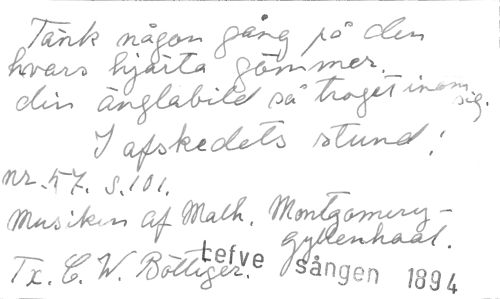 Tänk någon gång på den
hvars hjärta gömmer.
din änglabild så troget inom sig.
I afskedets stund!
nr. 57. s. 101.
Musiken af Math. Montgomery-
gyllenhaal.
Tx. C. W. Böttiger.
Lefve sången 1894